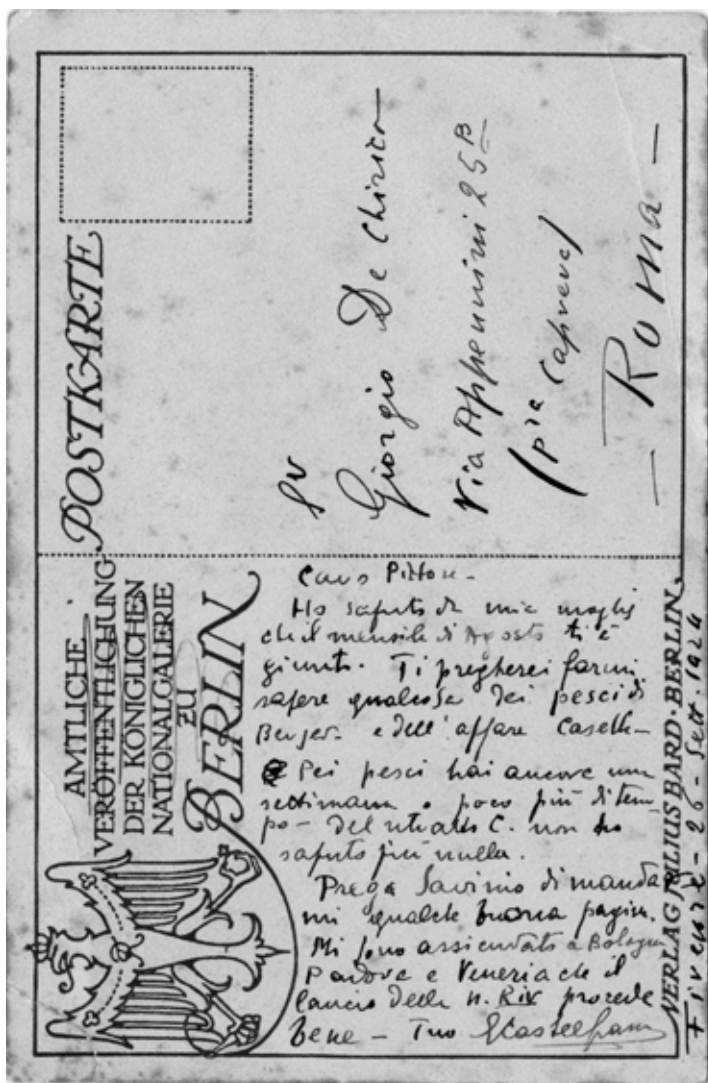 POSTKARTE
AMTLICHE
VERÖFFENTLICHUNG
DER KÖNIGLICHEN
NATIONALGALERIE
ZU
BERLIN
Giorgio De Chirico
Via Appennini 25 B
— Roma —
Caro Pittore -
Ho saputo da mia moglie
che il mensile di Agosto ti è
giunto. Ti pregherei farmi
sapere qualcosa dei pesci di
Berger. e dell'affare Casella -
Pei pesci hai ancora una
settimana o poco più di tem-
po - del ritratto C. non ho
saputo più nulla.
Prega Savinio di mandar
mi qualche buona pagina.
Mi sono assicurato a Bologna
Padova e Venezia che il
lancio della n. Riv procede
bene - Tuo GCastelfranco
VERLAG JULIUS BARD · BERLIN
Firenze - 26 - Sett. 1924